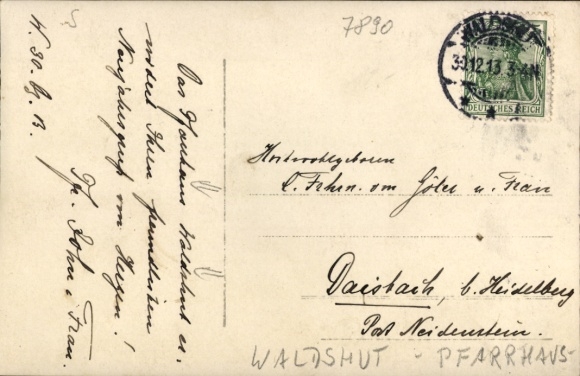 7890
WALDSHUT
30.12.13
DEUTSCHES REICH
W. 30. 13.
Das Pfarrhaus Waldshut er-
widert Ihren freundlichen
Neujahrsgruß von Herzen!
Pfr. u. Frau.
Hochwohlgeboren
Frhrn. von Göler u. Frau
Daisbach, b. Heidelberg
Post Neidenstein.
WALDSHUT - PFARRHAUS-